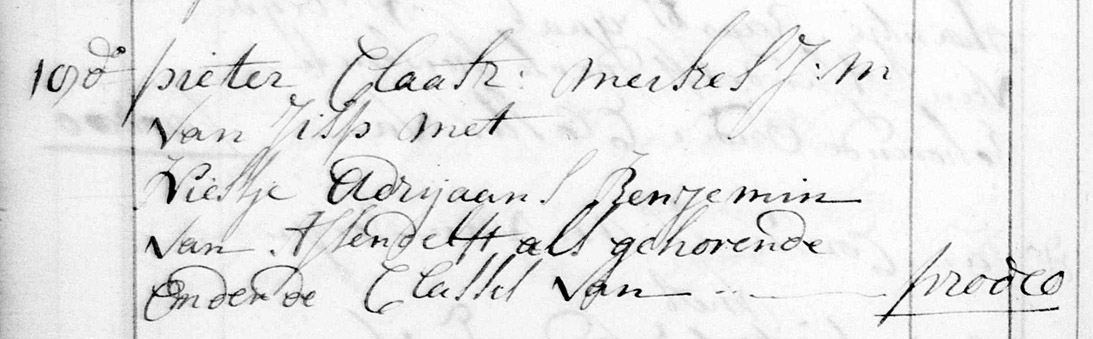 10 do pieter Claasz: Merkel J:m
van Jisp met
Liesje Adrijaans Benjemin
van Assendelft als gehorende
onder de Classis van — prodeo